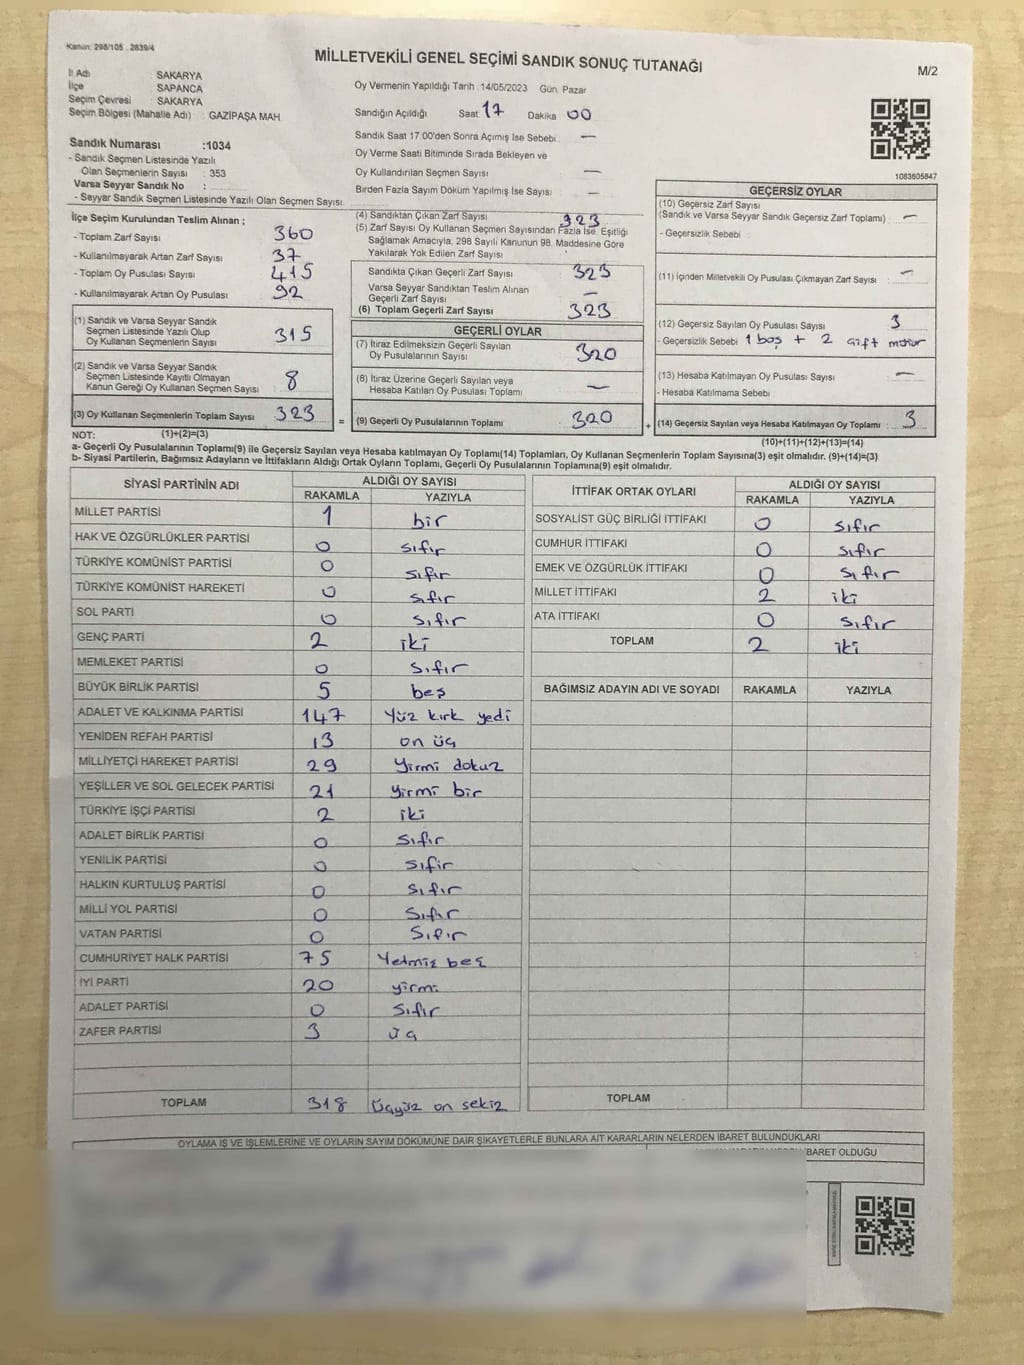 Kanun: 298/105 , 2839/4
MİLLETVEKİLİ GENEL SEÇİMİ SANDIK SONUÇ TUTANAĞI
M/2
İl Adı SAKARYA
İlçe SAPANCA
Seçim Çevresi SAKARYA
Seçim Bölgesi (Mahalle Adı) : GAZİPAŞA MAH
Oy Vermenin Yapıldığı Tarih :14/05/2023 Gün: Pazar
Sandığın Açıldığı Saat: 17 Dakika 00
Sandık Saat 17 00'den Sonra Açımış İse Sebebi : —
Oy Verme Saati Bitiminde Sırada Bekleyen ve
Oy Kullandırılan Seçmen Sayısı —
Birden Fazla Sayım Döküm Yapılmış İse Sayısı —
1083605847
Sandık Numarası :1034
- Sandık Seçmen Listesinde Yazılı
Olan Seçmenlerin Sayısı : 353
Varsa Seyyar Sandık No :
- Seyyar Sandık Seçmen Listesinde Yazılı Olan Seçmen Sayısı
İlçe Seçim Kurulundan Teslim Alınan ;
- Toplam Zarf Sayısı 360
- Kullanılmayarak Artan Zarf Sayısı 37
- Toplam Oy Pusulası Sayısı 415
- Kullanılmayarak Artan Oy Pusulası 92
(1) Sandık ve Varsa Seyyar Sandık
Seçmen Listesinde Yazılı Olup
Oy Kullanan Seçmenlerin Sayısı 315
(2) Sandık ve Varsa Seyyar Sandık
Seçmen Listesinde Kayıtlı Olmayan
Kanun Gereği Oy Kullanan Seçmen Sayısı 8
(3) Oy Kullanan Seçmenlerin Toplam Sayısı 323
(4) Sandıktan Çıkan Zarf Sayısı 323
(5) Zarf Sayısı Oy Kullanan Seçmen Sayısından Fazla İse, Eşitliği
Sağlamak Amacıyla, 298 Sayılı Kanunun 98. Maddesine Göre
Yakılarak Yok Edilen Zarf Sayısı
Sandıkta Çıkan Geçerli Zarf Sayısı 323
Varsa Seyyar Sandıktan Teslim Alınan
Geçerli Zarf Sayısı —
(6) Toplam Geçerli Zarf Sayısı 323
GEÇERLİ OYLAR
(7) İtiraz Edilmeksizin Geçerli Sayılan
Oy Pusulalarının Sayısı 320
(8) İtiraz Üzerine Geçerli Sayılan veya
Hesaba Katılan Oy Pusulası Toplamı —
= (9) Geçerli Oy Pusulalarının Toplamı 320
GEÇERSİZ OYLAR
(10) Geçersiz Zarf Sayısı
(Sandık ve Varsa Seyyar Sandık Geçersiz Zarf Toplamı) : —
- Geçersizlik Sebebi
(11) İçinden Milletvekili Oy Pusulası Çıkmayan Zarf Sayısı : —
(12) Geçersiz Sayılan Oy Pusulası Sayısı 3
- Geçersizlik Sebebi 1 boş + 2 çift mühür
(13) Hesaba Katılmayan Oy Pusulası Sayısı —
- Hesaba Katılmama Sebebi
+ (14) Geçersiz Sayılan veya Hesaba Katılmayan Oy Toplamı : 3
NOT: (1)+(2)=(3)
(10)+(11)+(12)+(13)=(14)
a- Geçerli Oy Pusulalarının Toplamı(9) ile Geçersiz Sayılan veya Hesaba katılmayan Oy Toplamı(14) Toplamları, Oy Kullanan Seçmenlerin Toplam Sayısına(3) eşit olmalıdır. (9)+(14)=(3)
b- Siyasi Partilerin, Bağımsız Adayların ve İttifakların Aldığı Ortak Oyların Toplamı, Geçerli Oy Pusulalarının Toplamına(9) eşit olmalıdır.
SİYASİ PARTİNİN ADI ALDIĞI OY SAYISI
RAKAMLA YAZIYLA
MİLLET PARTİSİ 1 bir
HAK VE ÖZGÜRLÜKLER PARTİSİ 0 sıfır
TÜRKİYE KOMÜNİST PARTİSİ 0 sıfır
TÜRKİYE KOMÜNİST HAREKETİ 0 sıfır
SOL PARTİ 0 sıfır
GENÇ PARTİ 2 iki
MEMLEKET PARTİSİ 0 sıfır
BÜYÜK BİRLİK PARTİSİ 5 beş
ADALET VE KALKINMA PARTİSİ 147 Yüz kırk yedi
YENİDEN REFAH PARTİSİ 13 on üç
MİLLİYETÇİ HAREKET PARTİSİ 29 Yirmi dokuz
YEŞİLLER VE SOL GELECEK PARTİSİ 21 yirmi bir
TÜRKİYE İŞÇİ PARTİSİ 2 iki
ADALET BİRLİK PARTİSİ 0 sıfır
YENİLİK PARTİSİ 0 sıfir
HALKIN KURTULUŞ PARTİSİ 0 sıfır
MİLLİ YOL PARTİSİ 0 sıfır
VATAN PARTİSİ 0 sıfır
CUMHURİYET HALK PARTİSİ 75 Yetmiş beş
İYİ PARTİ 20 yirmi
ADALET PARTİSİ 0 sıfır
ZAFER PARTİSİ 3 üç
TOPLAM 318 üçyüz on sekiz
İTTİFAK ORTAK OYLARI ALDIĞI OY SAYISI
RAKAMLA YAZIYLA
SOSYALİST GÜÇ BİRLİĞİ İTTİFAKI 0 sıfır
CUMHUR İTTİFAKI 0 sıfır
EMEK VE ÖZGÜRLÜK İTTİFAKI 0 sıfır
MİLLET İTTİFAKI 2 iki
ATA İTTİFAKI 0 sıfır
TOPLAM 2 iki
BAĞIMSIZ ADAYIN ADI VE SOYADI RAKAMLA YAZIYLA
TOPLAM
OYLAMA İŞ VE İŞLEMLERİNE VE OYLARIN SAYIM DÖKÜMÜNE DAİR ŞİKAYETLERLE BUNLARA AİT KARARLARIN NELERDEN İBARET BULUNDUKLARI
İBARET OLDUĞU